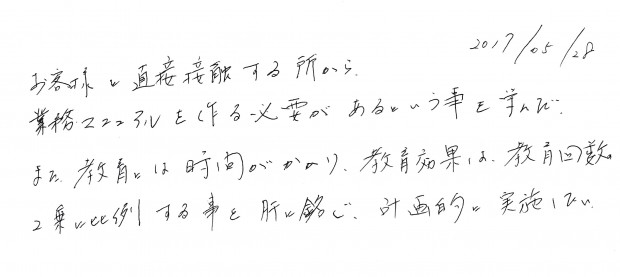 2017/05/28
お客様に直接接触する所から、
業務マニュアルを作る必要があるという事を学んだ。
また、教育には時間がかかり、教育効果は、教育回数の
2乗に比例する事を肝に銘じ、計画的に実施したい。